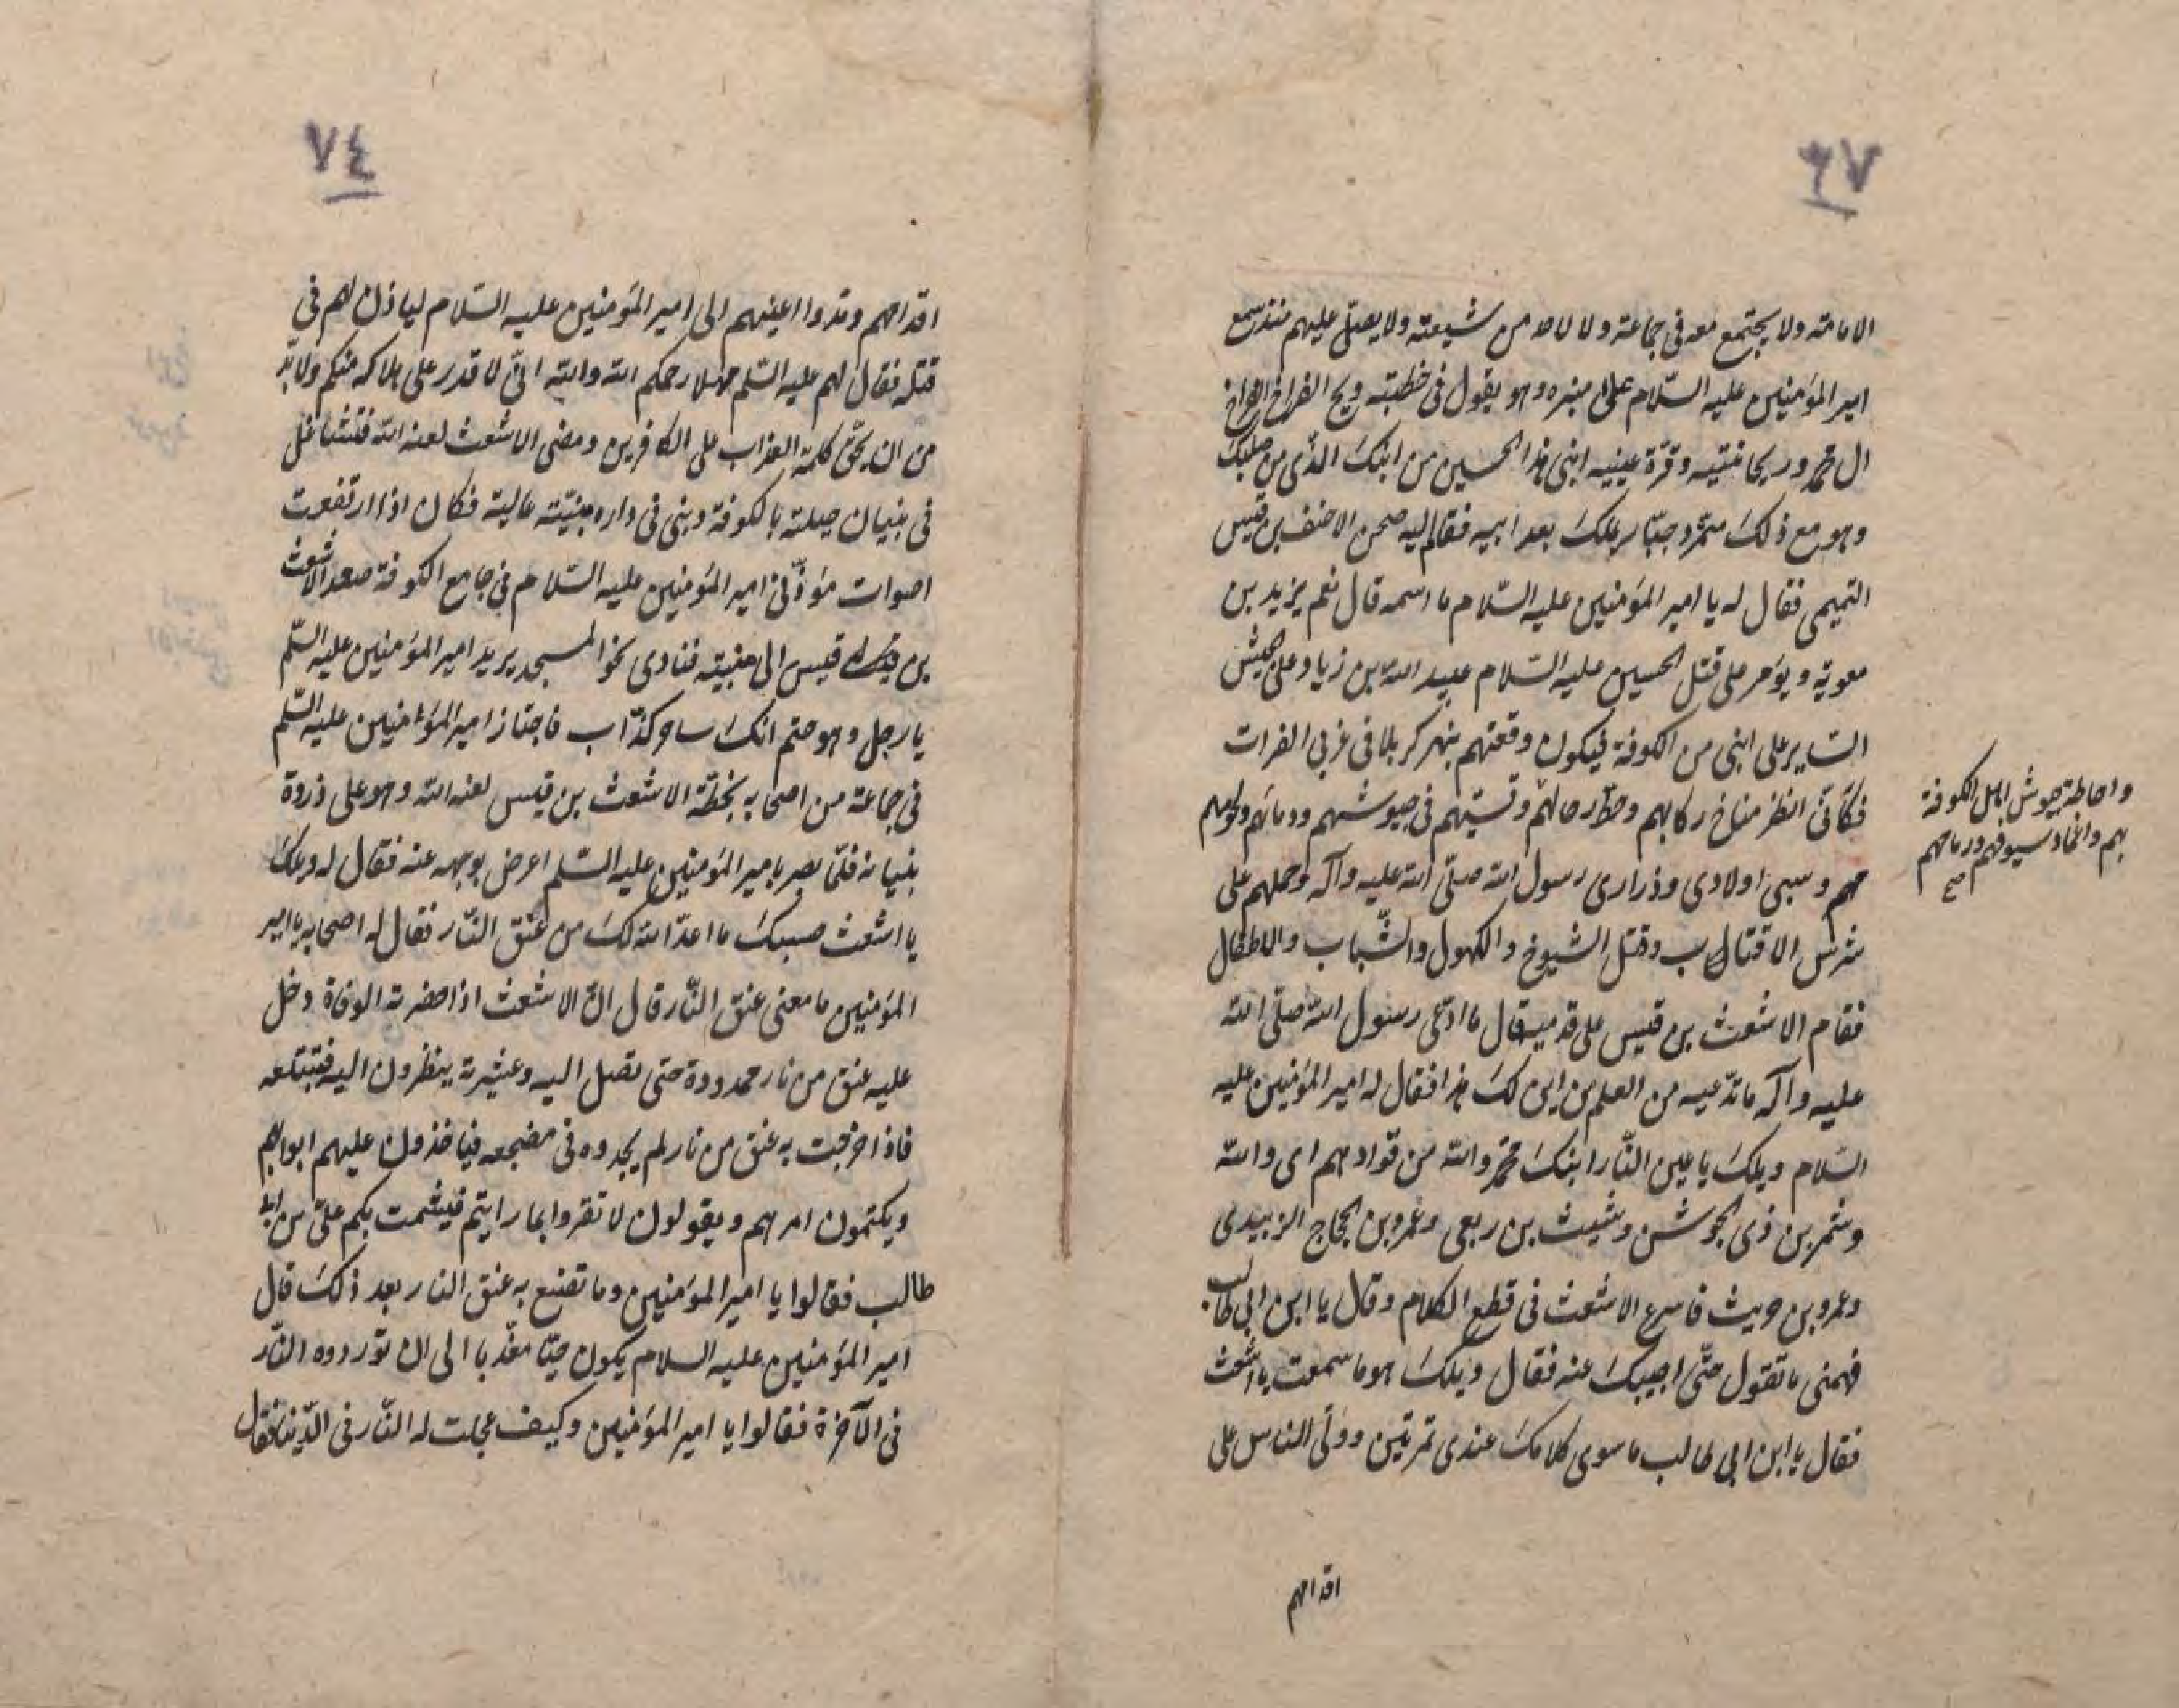 ٧٣
الامامة ولا يجتمع معه في جماعة ولا من شيعته ولا يصلى عليهم منذ سمع
امير المؤمنين عليه السّلام على منبره وهو يقول في خطبته ويح الفراخ الفراخ
ال محمد وريحانتيه وقرّة عينيه ابنى هذا الحسين من ابنك الذى من صلبك
وهو مع ذلك متمرّد جبّار يملك بعد ابيه فقام اليه الاحنف بن قيس
التميمى فقال له يا امير المؤمنين عليه السّلام ما اسمه قال نعم يزيد بن
معوية ويؤمر على قتل الحسين عليه السلام عبيد الله بن زياد على الجيش
الساير على ابنى من الكوفة فيكون وقعتهم بنهر كربلا في غربى الفرات
فكأنّى انظر مناخ ركابهم ومحطّ رحالهم جيوشهم ودمائهم
وسبى اولادى وذرارى رسول الله صلّى الله عليه وآله وحملهم على
شرس الاقتاب وقتل الشيوخ والكهول والشّباب والاطفال
فقام الاشعث بن قيس على قدميه فقال ما ادّعى رسول الله صلّى الله
عليه وآله ما تدّعيه من العلم من اين لك هذا فقال له امير المؤمنين عليه
السلام ويلك يا عين النّار ابنك محمّد والله من قوّادهم اى والله
وشمر بن ذى الجوشن وشبث بن ربعى وعمرو بن الحجاج الزبيدى
وعمرو بن حريث فاسرع الاشعث في قطع الكلام وقال يا ابن ابى طالب
فهمنى ما تقول حتّى اجيبك عنه فقال ويلك هو ما سمعت يا اشعث
فقال يا ابن ابى طالب ما سوى كلامك عندى تمرتين وولّى الناس على
اقدامهم
واحاطة جيوش اهل الكوفة
بهم واغماد سيوفهم ورماحهم
صح
٧٤
اقدامهم ومدوا اعينهم الى امير المؤمنين عليه السّلام لياذن لهم في
قتله فقال لهم عليه السّلم مهلا رحمكم الله والله انّى لا قدر على هلاكه منكم ولا بدّ
من ان يحقّ كلمة العذاب على الكافرين ومضى الاشعث لعنه الله فتشاغل
في بنيان بالكوفة وبنى في داره مئذنة عالية فكان اذا ارتفعت
اصوات مؤذّنى امير المؤمنين عليه السّلام في جامع الكوفة صعد الاشعث
بن قيس الى فنادى نحو المسجد يريد امير المؤمنين عليه السّلم
يا رجل وهو انك ساحر كذّاب فاجتاز امير المؤمنين عليه السّلم
في جماعة من اصحابه بخطّة الاشعث بن قيس لعنه الله وهو على ذروة
بنيانه فلمّا بصر بامير المؤمنين عليه السّلم اعرض بوجهه عنه فقال له ويلك
يا اشعث حسبك ما اعدّ الله لك من عنق النّار فقال له اصحابه يا امير
المؤمنين ما معنى عنق النّار قال انّ الاشعث اذا حضرته الوفاة دخل
عليه عنق من نار ممدودة حتى تصل اليه وعشيرته ينظرون اليه فتبتلعه
فاذا خرجت به عنق من نار لم يجدوه في مضجعه فياخذون عليهم ابوابهم
ويكتمون امرهم ويقولون لا تقروا بما رايتم فيشمت بكم علىّ بن ابى
طالب فقالوا يا امير المؤمنين وما تصنع به عنق النار بعد ذلك قال
امير المؤمنين عليه السلام يكون حيّا معذّبا الى ان تورده النّار
في الآخرة فقالوا يا امير المؤمنين وكيف عجلت له النّار في الدّنيا فقال